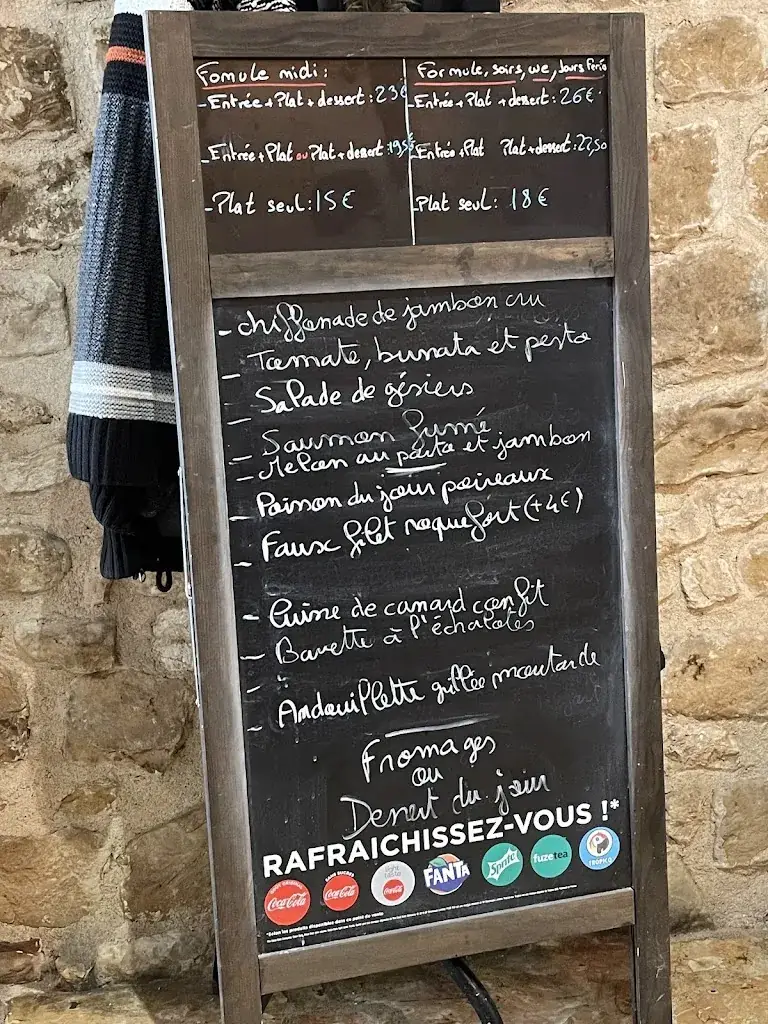 Fomule midi:
- Entrée + Plat + dessert: 23€
- Entrée + Plat ou Plat + dessert: 19,5€
- Plat seul: 15€
Formule, soirs, we, Jours Fériés
- Entrée + Plat + dessert: 26€
- Entrée + Plat Plat + dessert: 22,50
- Plat seul: 18€
- chiffonade de jambon cru
- Tomate, burrata et pesto
- Salade de gésiers
- Saumon fumé
- Melon au porto et jambon
- Poisson du jour poireaux
- Faux filet roquefort (+4€)
- Cuisse de canard confit
- Bavette à l'échalotes
-
- Andouillette grillée moutarde
Fromages
ou
Dessert du jour
RAFRAICHISSEZ-VOUS !*
GOÛT ORIGINAL Coca-Cola
SANS SUCRES Coca-Cola
light taste Coca-Cola
FANTA
Sprite
fuzetea
TROPICO
*Selon les produits disponibles dans ce point de vente